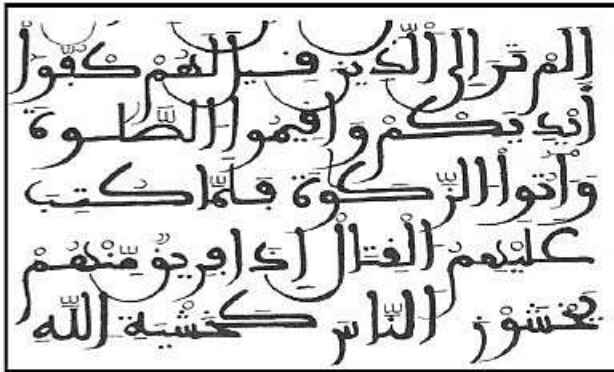 الم تر الى الذين قيل لهم كفوا
أيديكم وأقيموا الصلوة
وأتوا الزكوة فلما كتب
عليهم القتال إذا فريق منهم
يخشون الناس كخشية الله